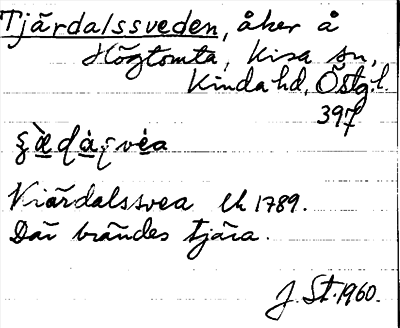 Tjärdalssveden, åker å
Högtomta, Kisa sn,
Kinda hd, Östg.l.
397
Kiärdalssvea Lk 1789.
Där brändes tjära.
J. St. 1960.